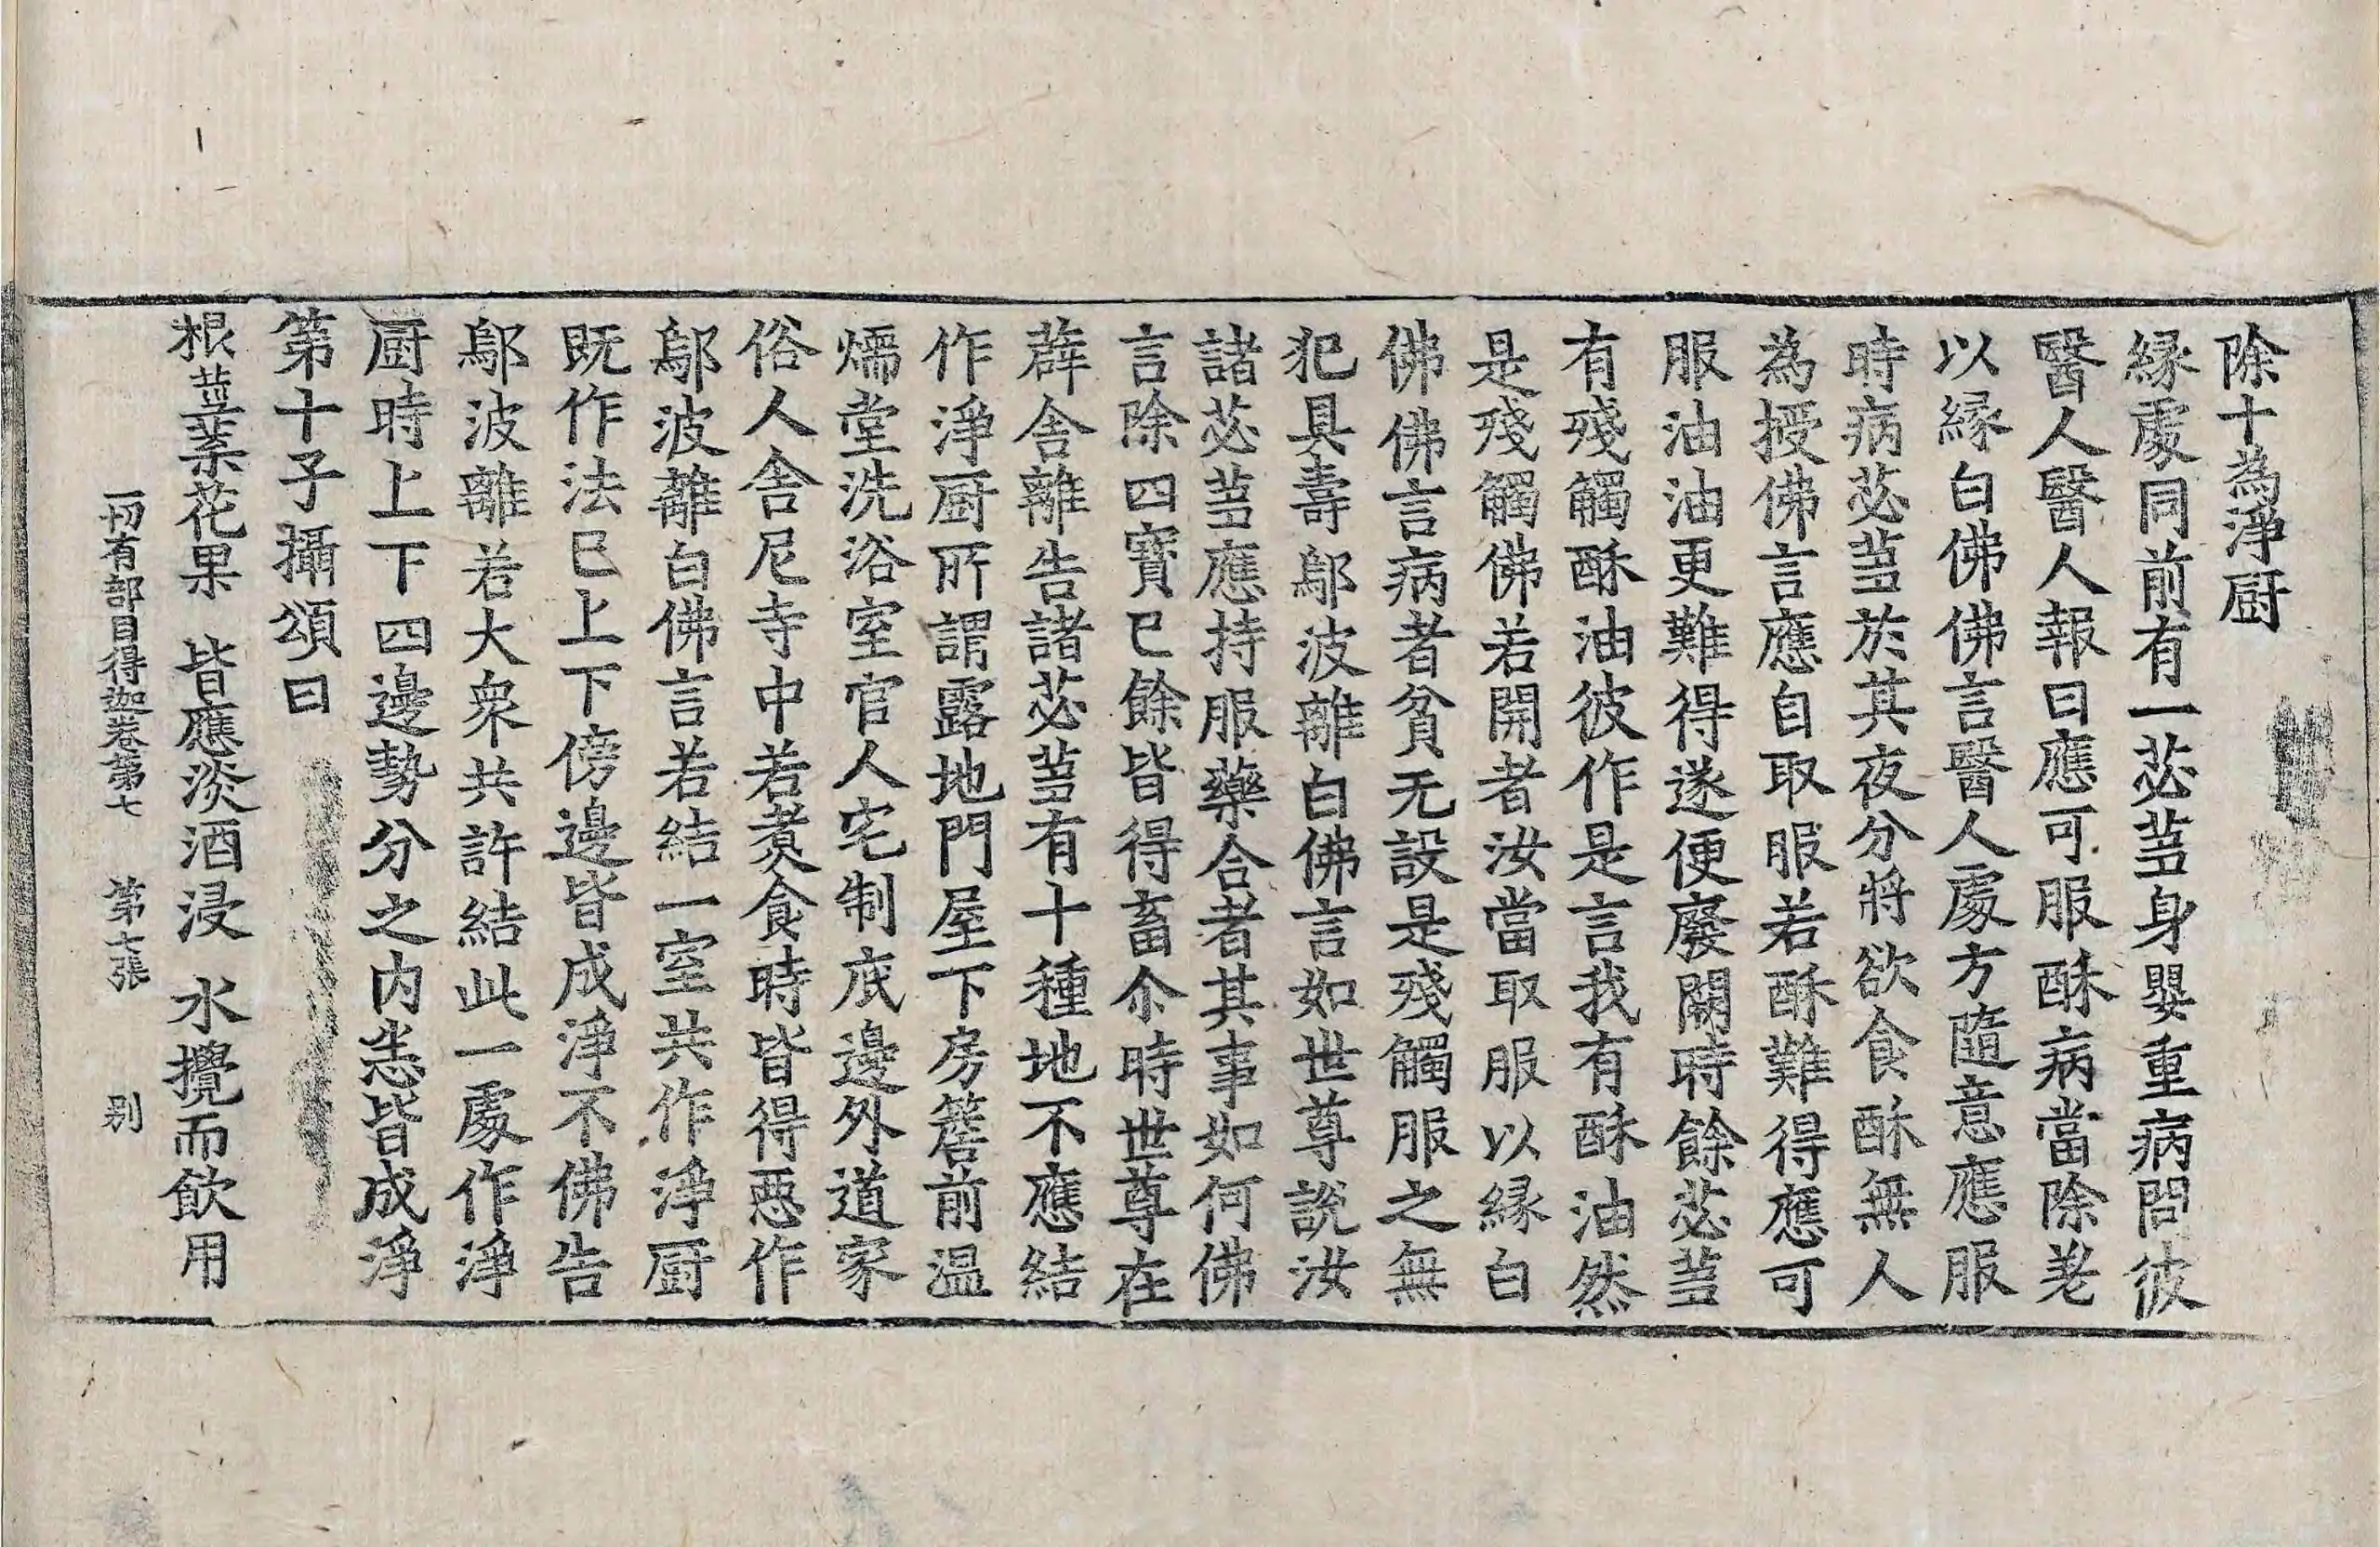 除十為淨厨
縁處同前有一苾蒭身嬰重病問彼
醫人醫人報曰應可服酥病當除差
以縁白佛佛言醫人處方隨意應服
時病苾蒭於其夜分將欲食酥無人
為授佛言應自取服若酥難得應可
服油油更難得遂便廢闕時餘苾蒭
有殘觸酥油彼作是言我有酥油然
是殘觸佛若開者汝當取服以縁白
佛佛言病者貧无設是殘觸服之無
犯具壽鄔波離白佛言如世尊說汝
諸苾蒭應持服藥合者其事如何佛
言除四寶已餘皆得畜尒時世尊在
薜舎離告諸苾蒭有十種地不應結
作淨厨所謂露地門屋下房簷前温
煗堂洗浴室官人宅制底邊外道家
俗人舎尼寺中若煑食時皆得惡作
鄔波離白佛言若結一室共作淨厨
既作法已上下傍邊皆成淨不佛告
鄔波離若大衆共許結此一處作淨
厨時上下四邊勢分之内悉皆成淨
第十子攝頌曰
根莖葉花果 皆應淡酒浸 水攪而飲用
一切有部目得迦卷第七 第七張 别